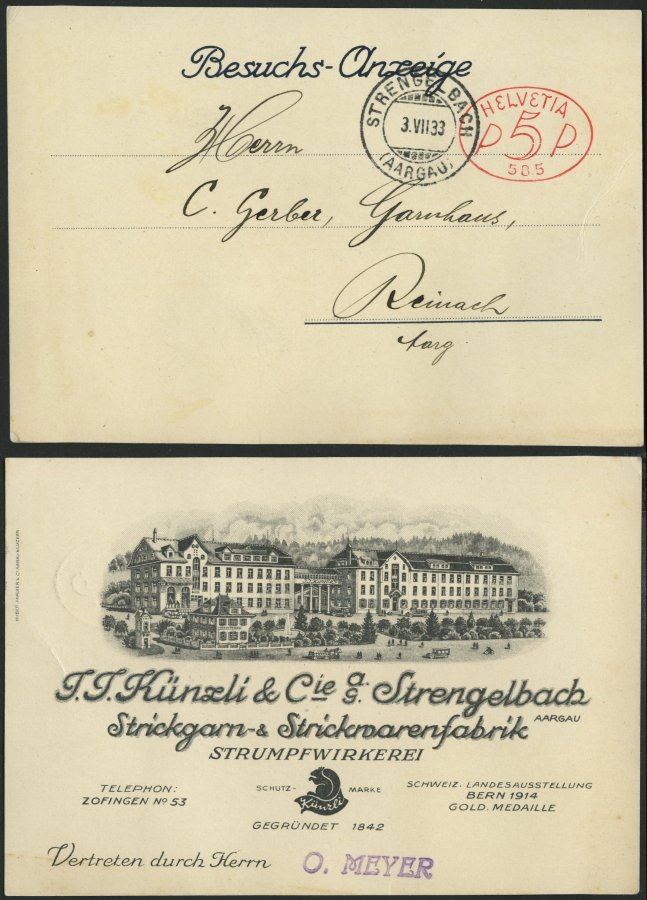 Besuchs-Anzeige
STRENGELBACH
3.VII33
(AARGAU)
HELVETIA
P 5 P
585
Herrn
C. Gerber, Garnhaus,
Reinach
Aarg.
J.J. Künzli & Cie a.g. Strengelbach
AARGAU
Strickgarn- & Strickwarenfabrik
STRUMPFWIRKEREI
TELEPHON:
ZOFINGEN No 53
SCHUTZ- MARKE
Künzli
GEGRÜNDET 1842
SCHWEIZ. LANDESAUSSTELLUNG
BERN 1914
GOLD. MEDAILLE
Vertreten durch Herrn O. MEYER